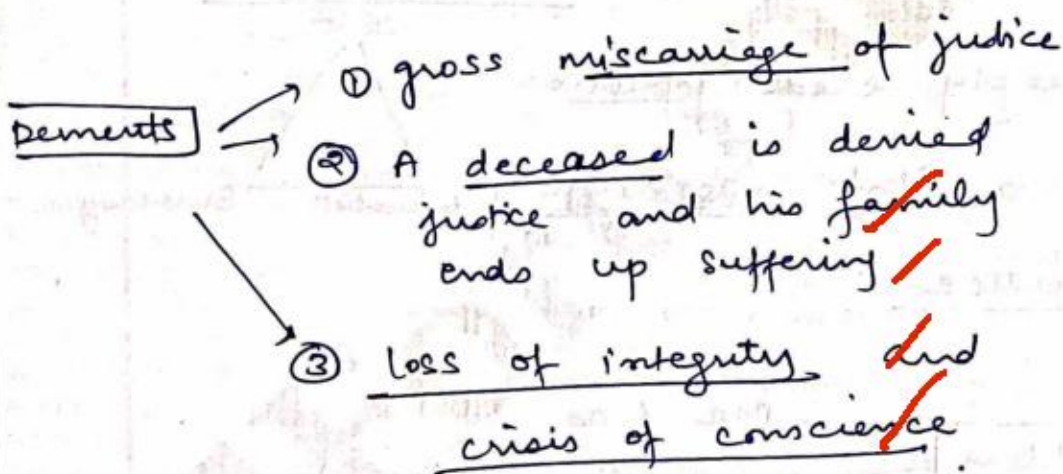 ① gross miscarriage of justice
Demerits
② A deceased is denied
justice and his family
ends up suffering
③ loss of integrity and
crisis of conscience